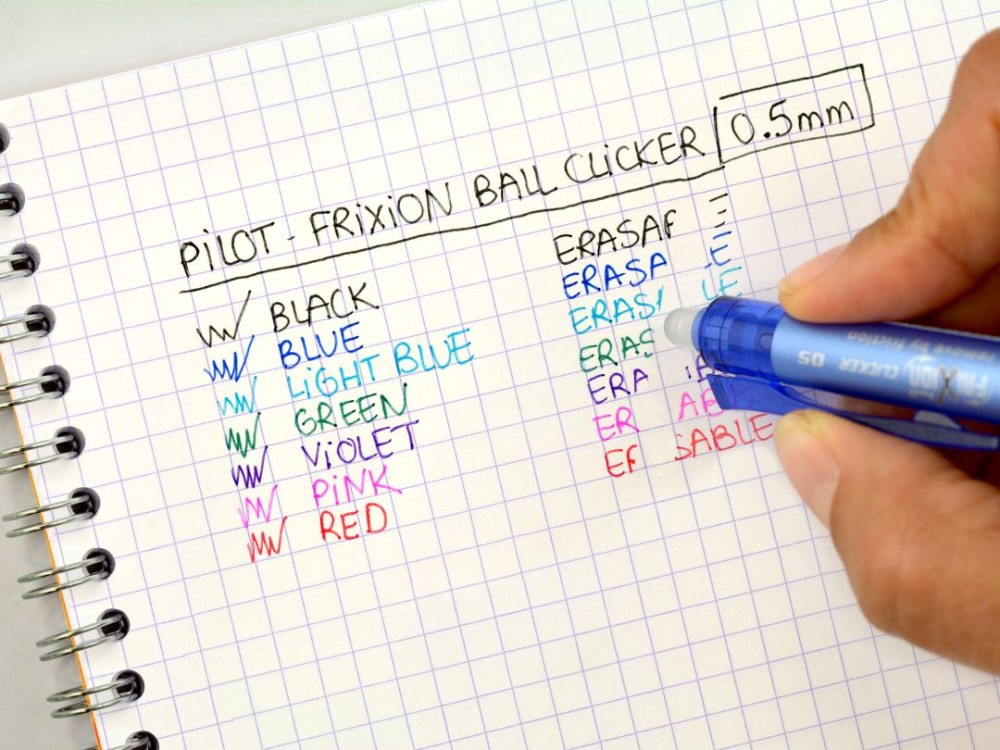 PiLOT - FRiXiON BALL CLiCKER 0.5mm
BLACK
BLUE
LiGHT BLUE
GREEN
ViOLET
PiNK
RED
ERASA E
ERASA E
ERAS LE
ERAS
ERA
ER AB
E SABLE
FRiXiON CLICKER 05
remove by friction